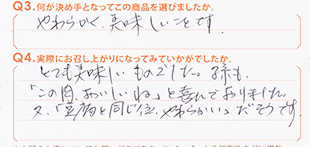 Q3.何が決め手となってこの商品を選びましたか。
やわらかく、美味しいことです。
Q4.実際にお召し上がりになってみていかがでしたか。
とても美味しいものでした。孫も
「この肉、おいしいね」と喜んでおりました。
又、「豆腐と同じ位、やわらかい」だそうです。